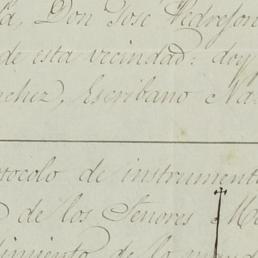 Don Jose Pedrison
de esta vecindad: doy
chez, Escribano Na
tocolo de instrument
de los Señores
dimiento de lo mand